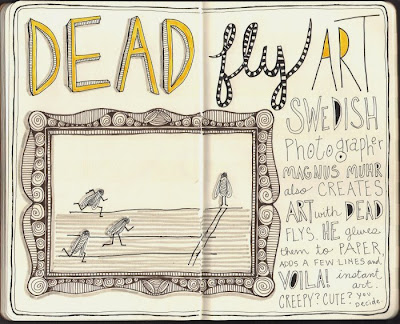 DEAD fly ART
SWEDISH
Photographer
MAGNUS MUHR
also CREATES
ART with DEAD
FLYS. HE glues
them to PAPER,
ADDS A FEW LIMES and
VOILA! instant
art.
CREEPY? CUTE? you
Decide.